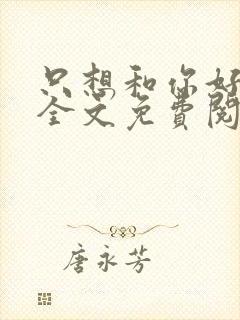 只想和你好
全文免費閱
唐永芳